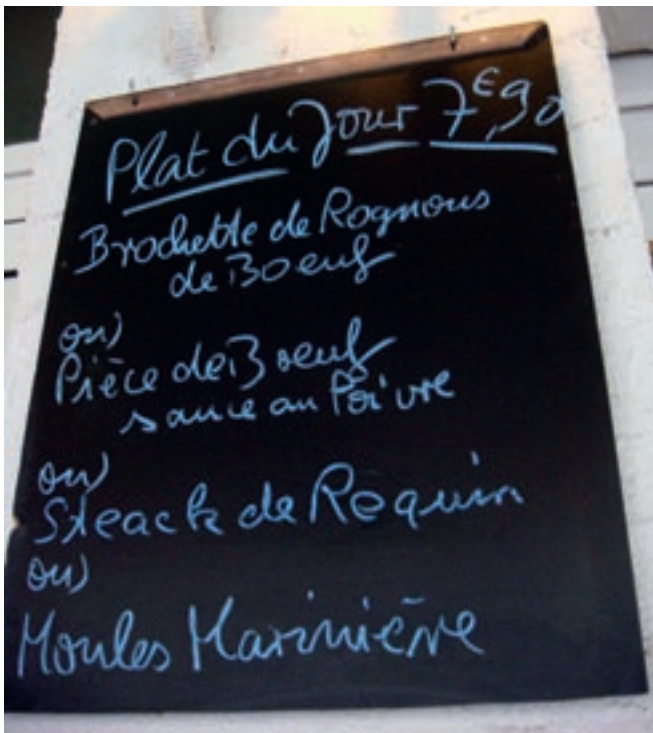 Plat du Jour 7€,90
Brochette de Rognons
de Boeuf
ou)
Pièce de Boeuf
sauce au Poivre
ou)
Steack de Requin
ou)
Moules Marinière